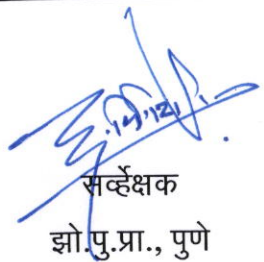 सर्व्हेक्षक
झो.पु.प्रा., पुणे